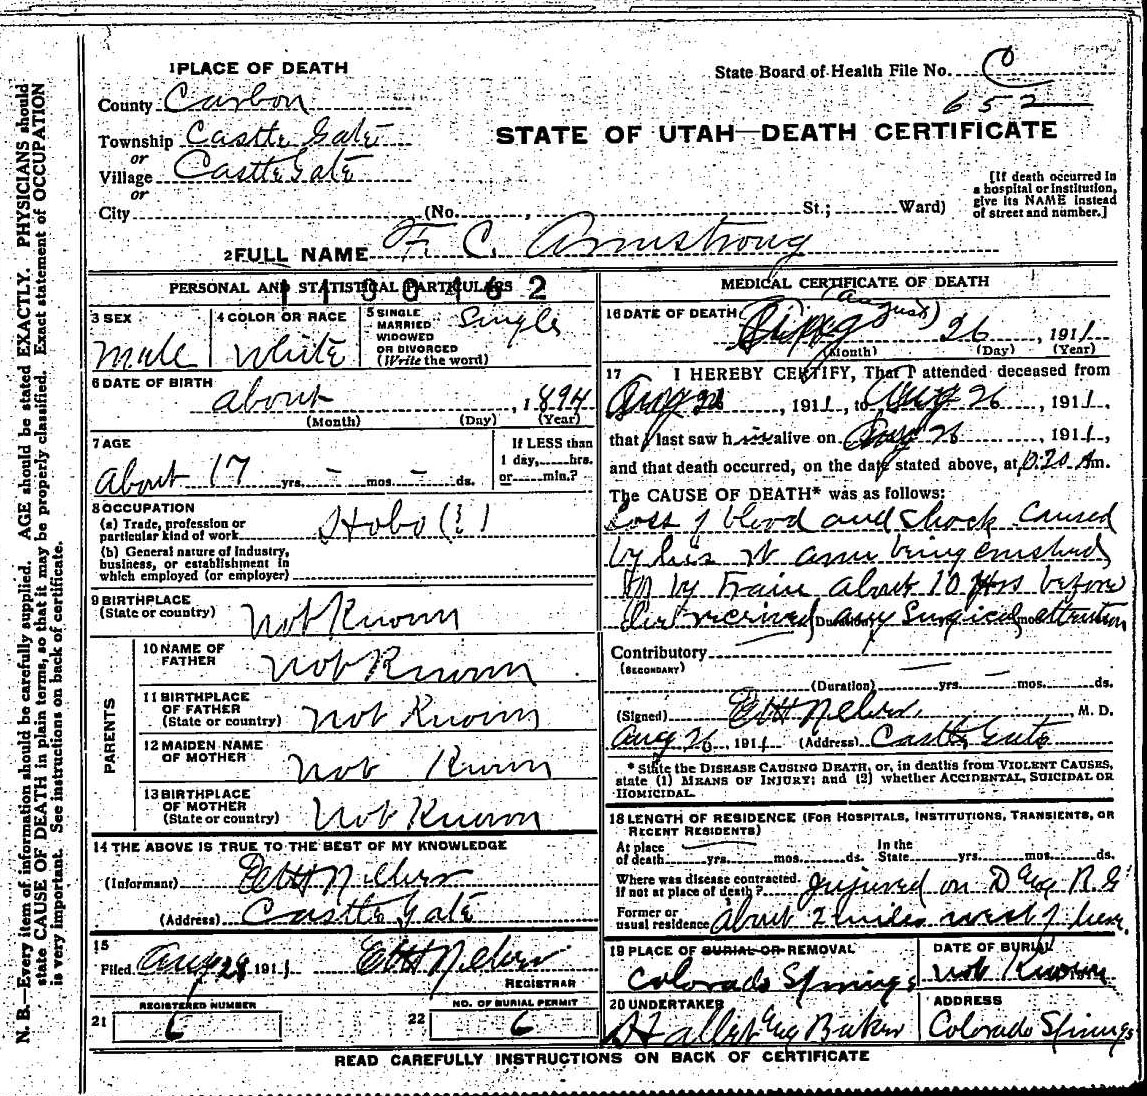 N. B.—Every item of information should be carefully supplied. AGE should be stated EXACTLY. PHYSICIANS should
state CAUSE OF DEATH in plain terms, so that it may be properly classified. Exact statement of OCCUPATION
is very important. See instructions on back of certificate.
1 PLACE OF DEATH
State Board of Health File No. C
652
County Carbon
STATE OF UTAH—DEATH CERTIFICATE
Township Castle Gate
or
Village Castle Gate
or
[If death occurred in a hospital or institution, give its NAME instead of street and number.]
City (No. , St.; Ward)
2 FULL NAME F. C. Armstrong
PERSONAL AND STATISTICAL PARTICULARS
1100162
3 SEX Male
4 COLOR OR RACE White
5 SINGLE MARRIED WIDOWED OR DIVORCED (Write the word) Single
6 DATE OF BIRTH about , 1894
(Month) (Day) (Year)
7 AGE about 17 yrs. - mos. - ds.
If LESS than 1 day, hrs. or min.?
8 OCCUPATION
(a) Trade, profession or particular kind of work Hobo (?)
(b) General nature of industry, business, or establishment in which employed (or employer)
9 BIRTHPLACE (State or country) Not Known
PARENTS
10 NAME OF FATHER Not Known
11 BIRTHPLACE OF FATHER (State or country) Not Known
12 MAIDEN NAME OF MOTHER Not Known
13 BIRTHPLACE OF MOTHER (State or country) Not Known
14 THE ABOVE IS TRUE TO THE BEST OF MY KNOWLEDGE
(Informant)
(Address) Castle Gate
15
Filed Aug 28 1911
REGISTRAR
REGISTERED NUMBER
21 6
NO. OF BURIAL PERMIT
22 6
MEDICAL CERTIFICATE OF DEATH
16 DATE OF DEATH (August) 26 , 1911
(Month) (Day) (Year)
17 I HEREBY CERTIFY, That I attended deceased from
Aug 26 , 1911, to Aug 26 , 1911,
that I last saw him alive on Aug 26 , 1911,
and that death occurred, on the date stated above, at 10:20 Am.
The CAUSE OF DEATH* was as follows:
Loss of blood and shock caused
by his rt arm being crushed
by train about 10 Hrs before
received any Surgical attention
(Duration) mos.
Contributory —
(SECONDARY)
(Duration) yrs. — mos. ds.
(Signed) M. D.
Aug 26, 1911 (Address) Castle Gate
* State the DISEASE CAUSING DEATH, or, in deaths from VIOLENT CAUSES, state (1) MEANS OF INJURY; and (2) whether ACCIDENTAL, SUICIDAL OR HOMICIDAL.
18 LENGTH OF RESIDENCE (FOR HOSPITALS, INSTITUTIONS, TRANSIENTS, OR RECENT RESIDENTS)
At place of death yrs. mos. ds. In the State yrs. mos. ds.
Where was disease contracted, if not at place of death? Injured on
Former or usual residence about 2 miles west of here.
19 PLACE OF BURIAL OR REMOVAL Colorado Springs
DATE OF BURIAL Not Known
20 UNDERTAKER Baker
ADDRESS Colorado Springs
READ CAREFULLY INSTRUCTIONS ON BACK OF CERTIFICATE